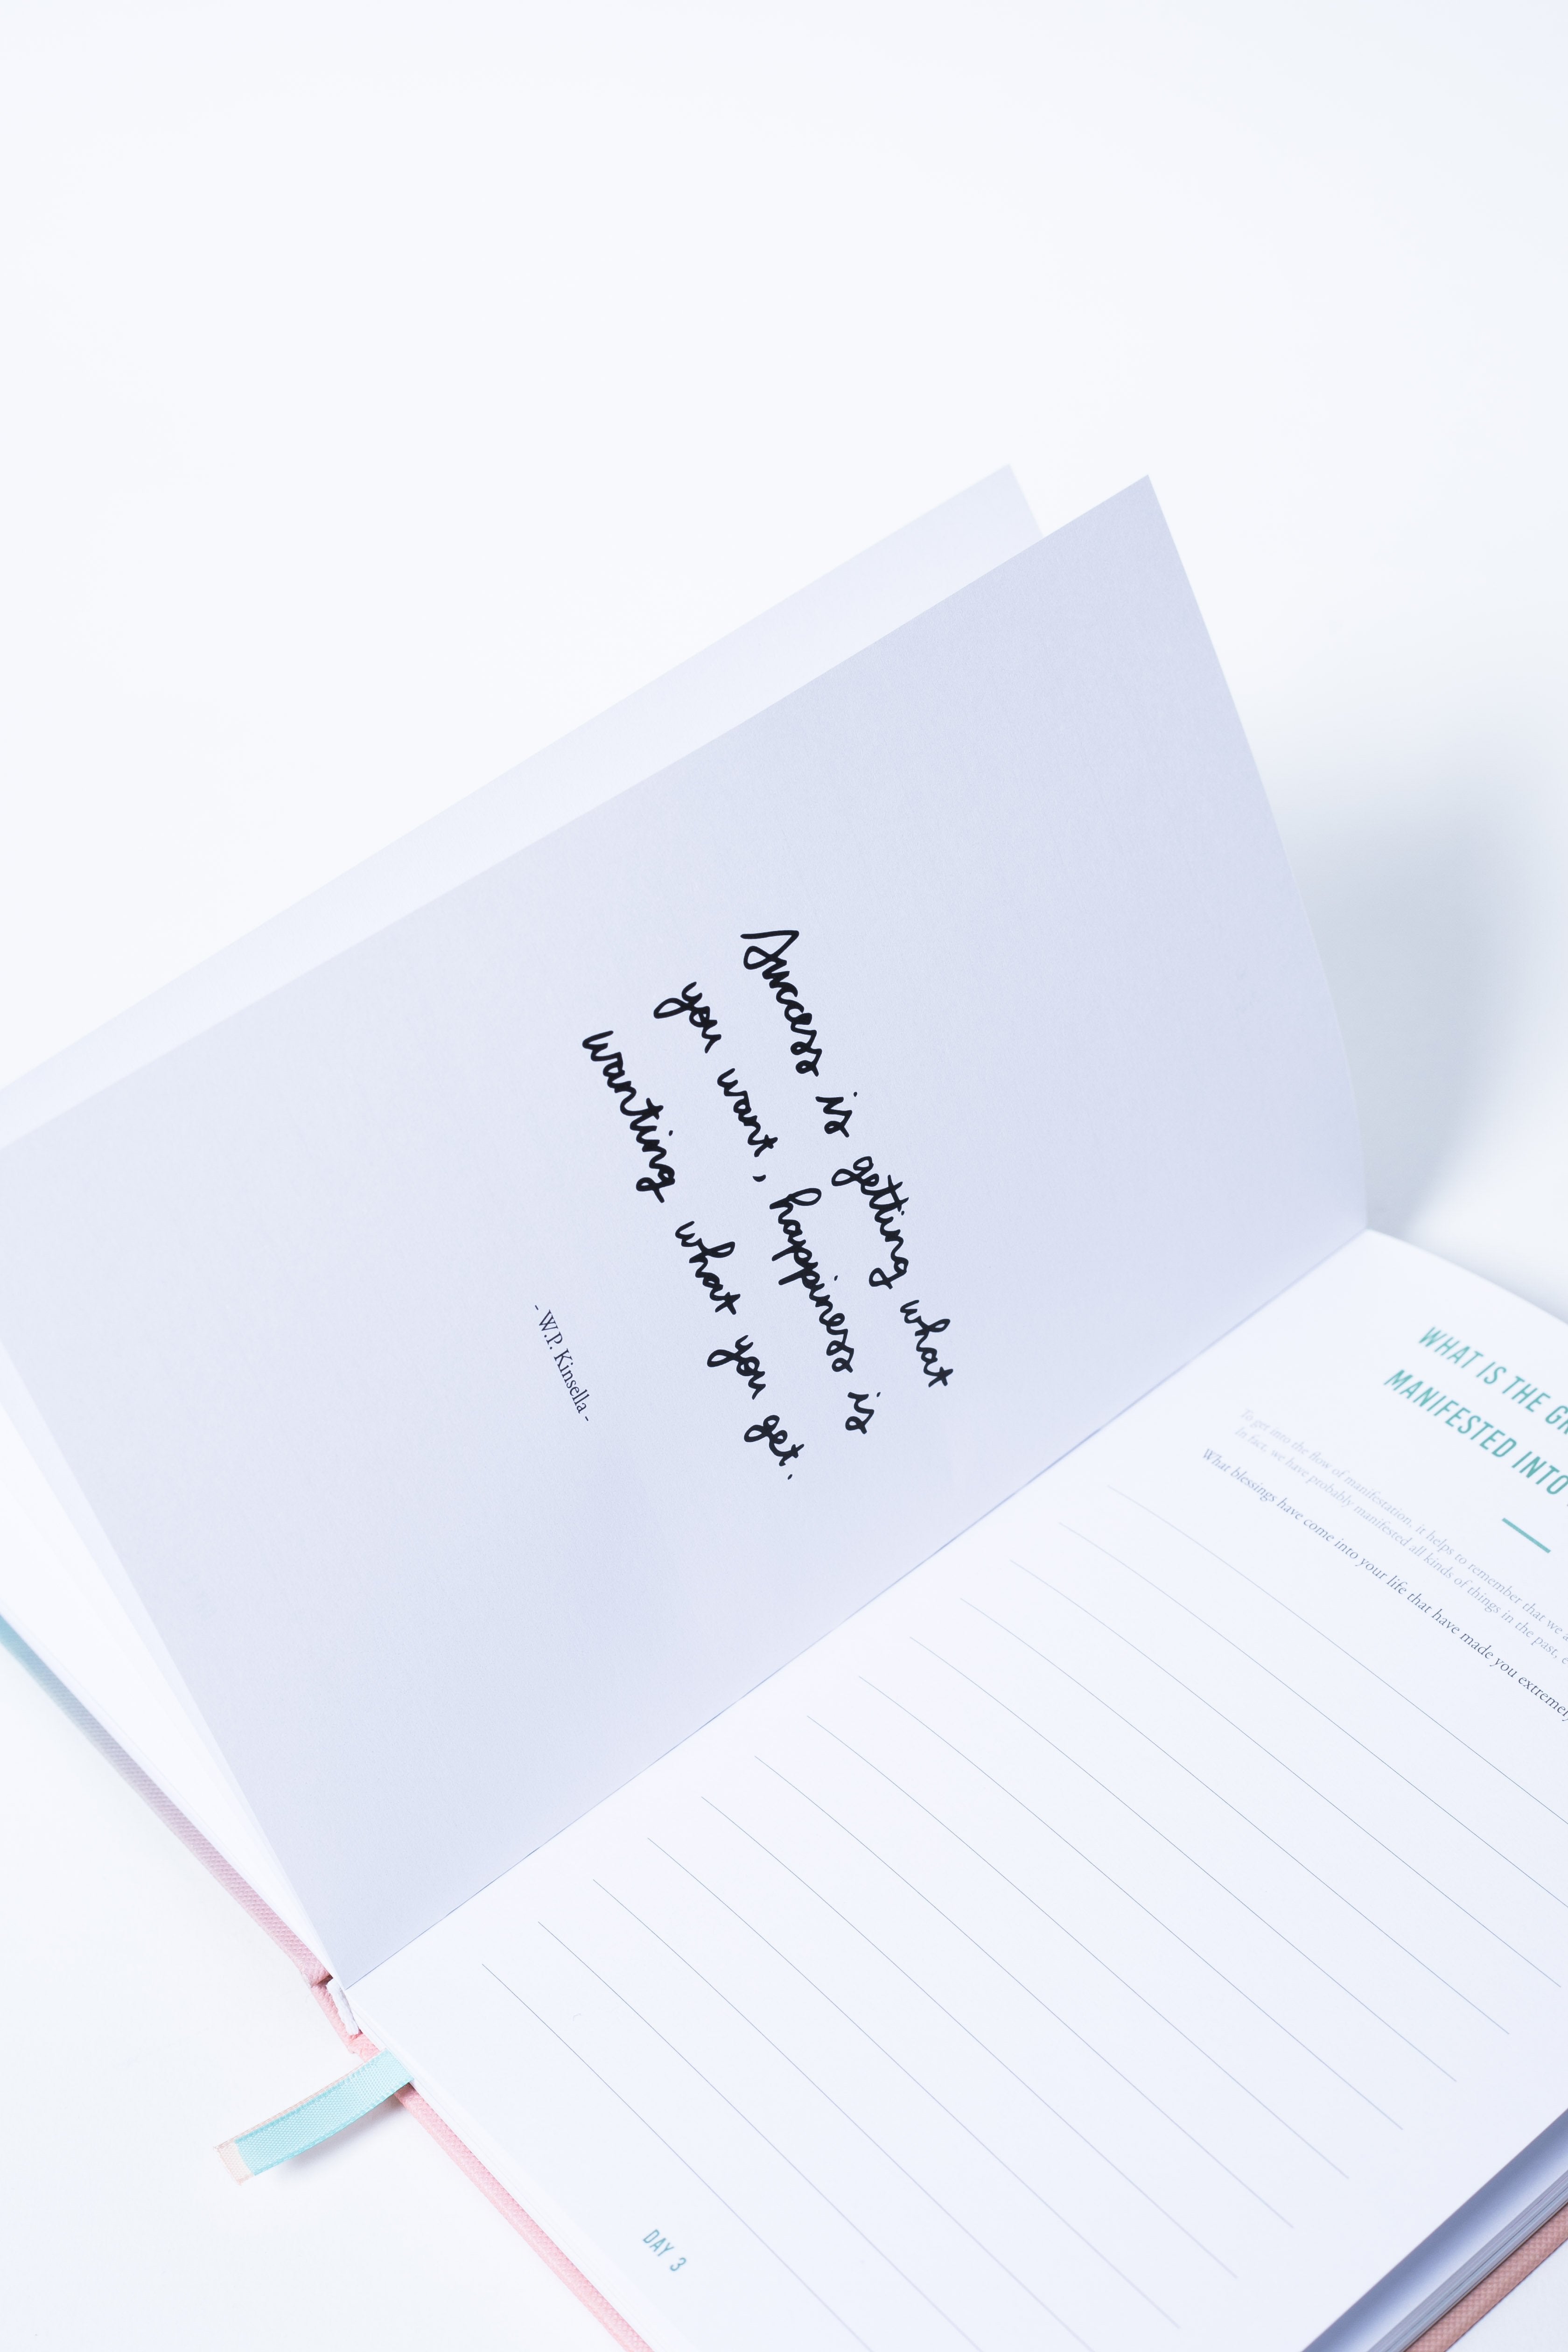 Success is getting what
you want, happiness is
wanting what you get.
- W.P. Kinsella -
WHAT IS THE
MANIFESTED INTO
To get into the flow of manifestation, it helps to remember that we
In fact, we have probably manifested all kinds of things in the past,
What blessings have come into your life that have made you
DAY 3